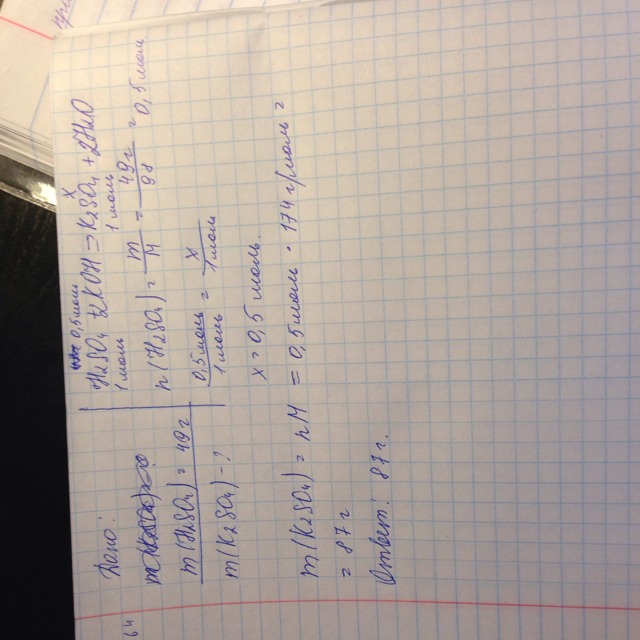 64
Дано:
m(H2SO4) = 49г
m(K2SO4) - ?
0,5 моль x
H2SO4 + 2KOH = K2SO4 + 2H2O
1 моль 1 моль
n(H2SO4) = m/M = 49г/98 = 0,5 моль
0,5 моль/1 моль = x/1 моль
x = 0,5 моль.
m(K2SO4) = nM = 0,5 моль · 174 г/моль =
= 87 г
Ответ: 87 г.